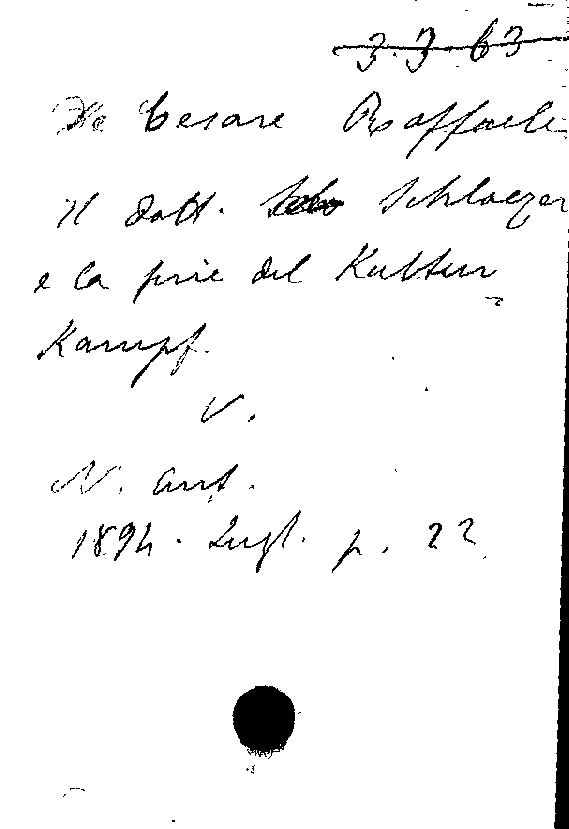 3.3.63
De Cesare Raffaele
Il dott. Schloezer
e la fine del Kultur
Kampf.
V.
N. Ant.
1894. Lugl. p. 22